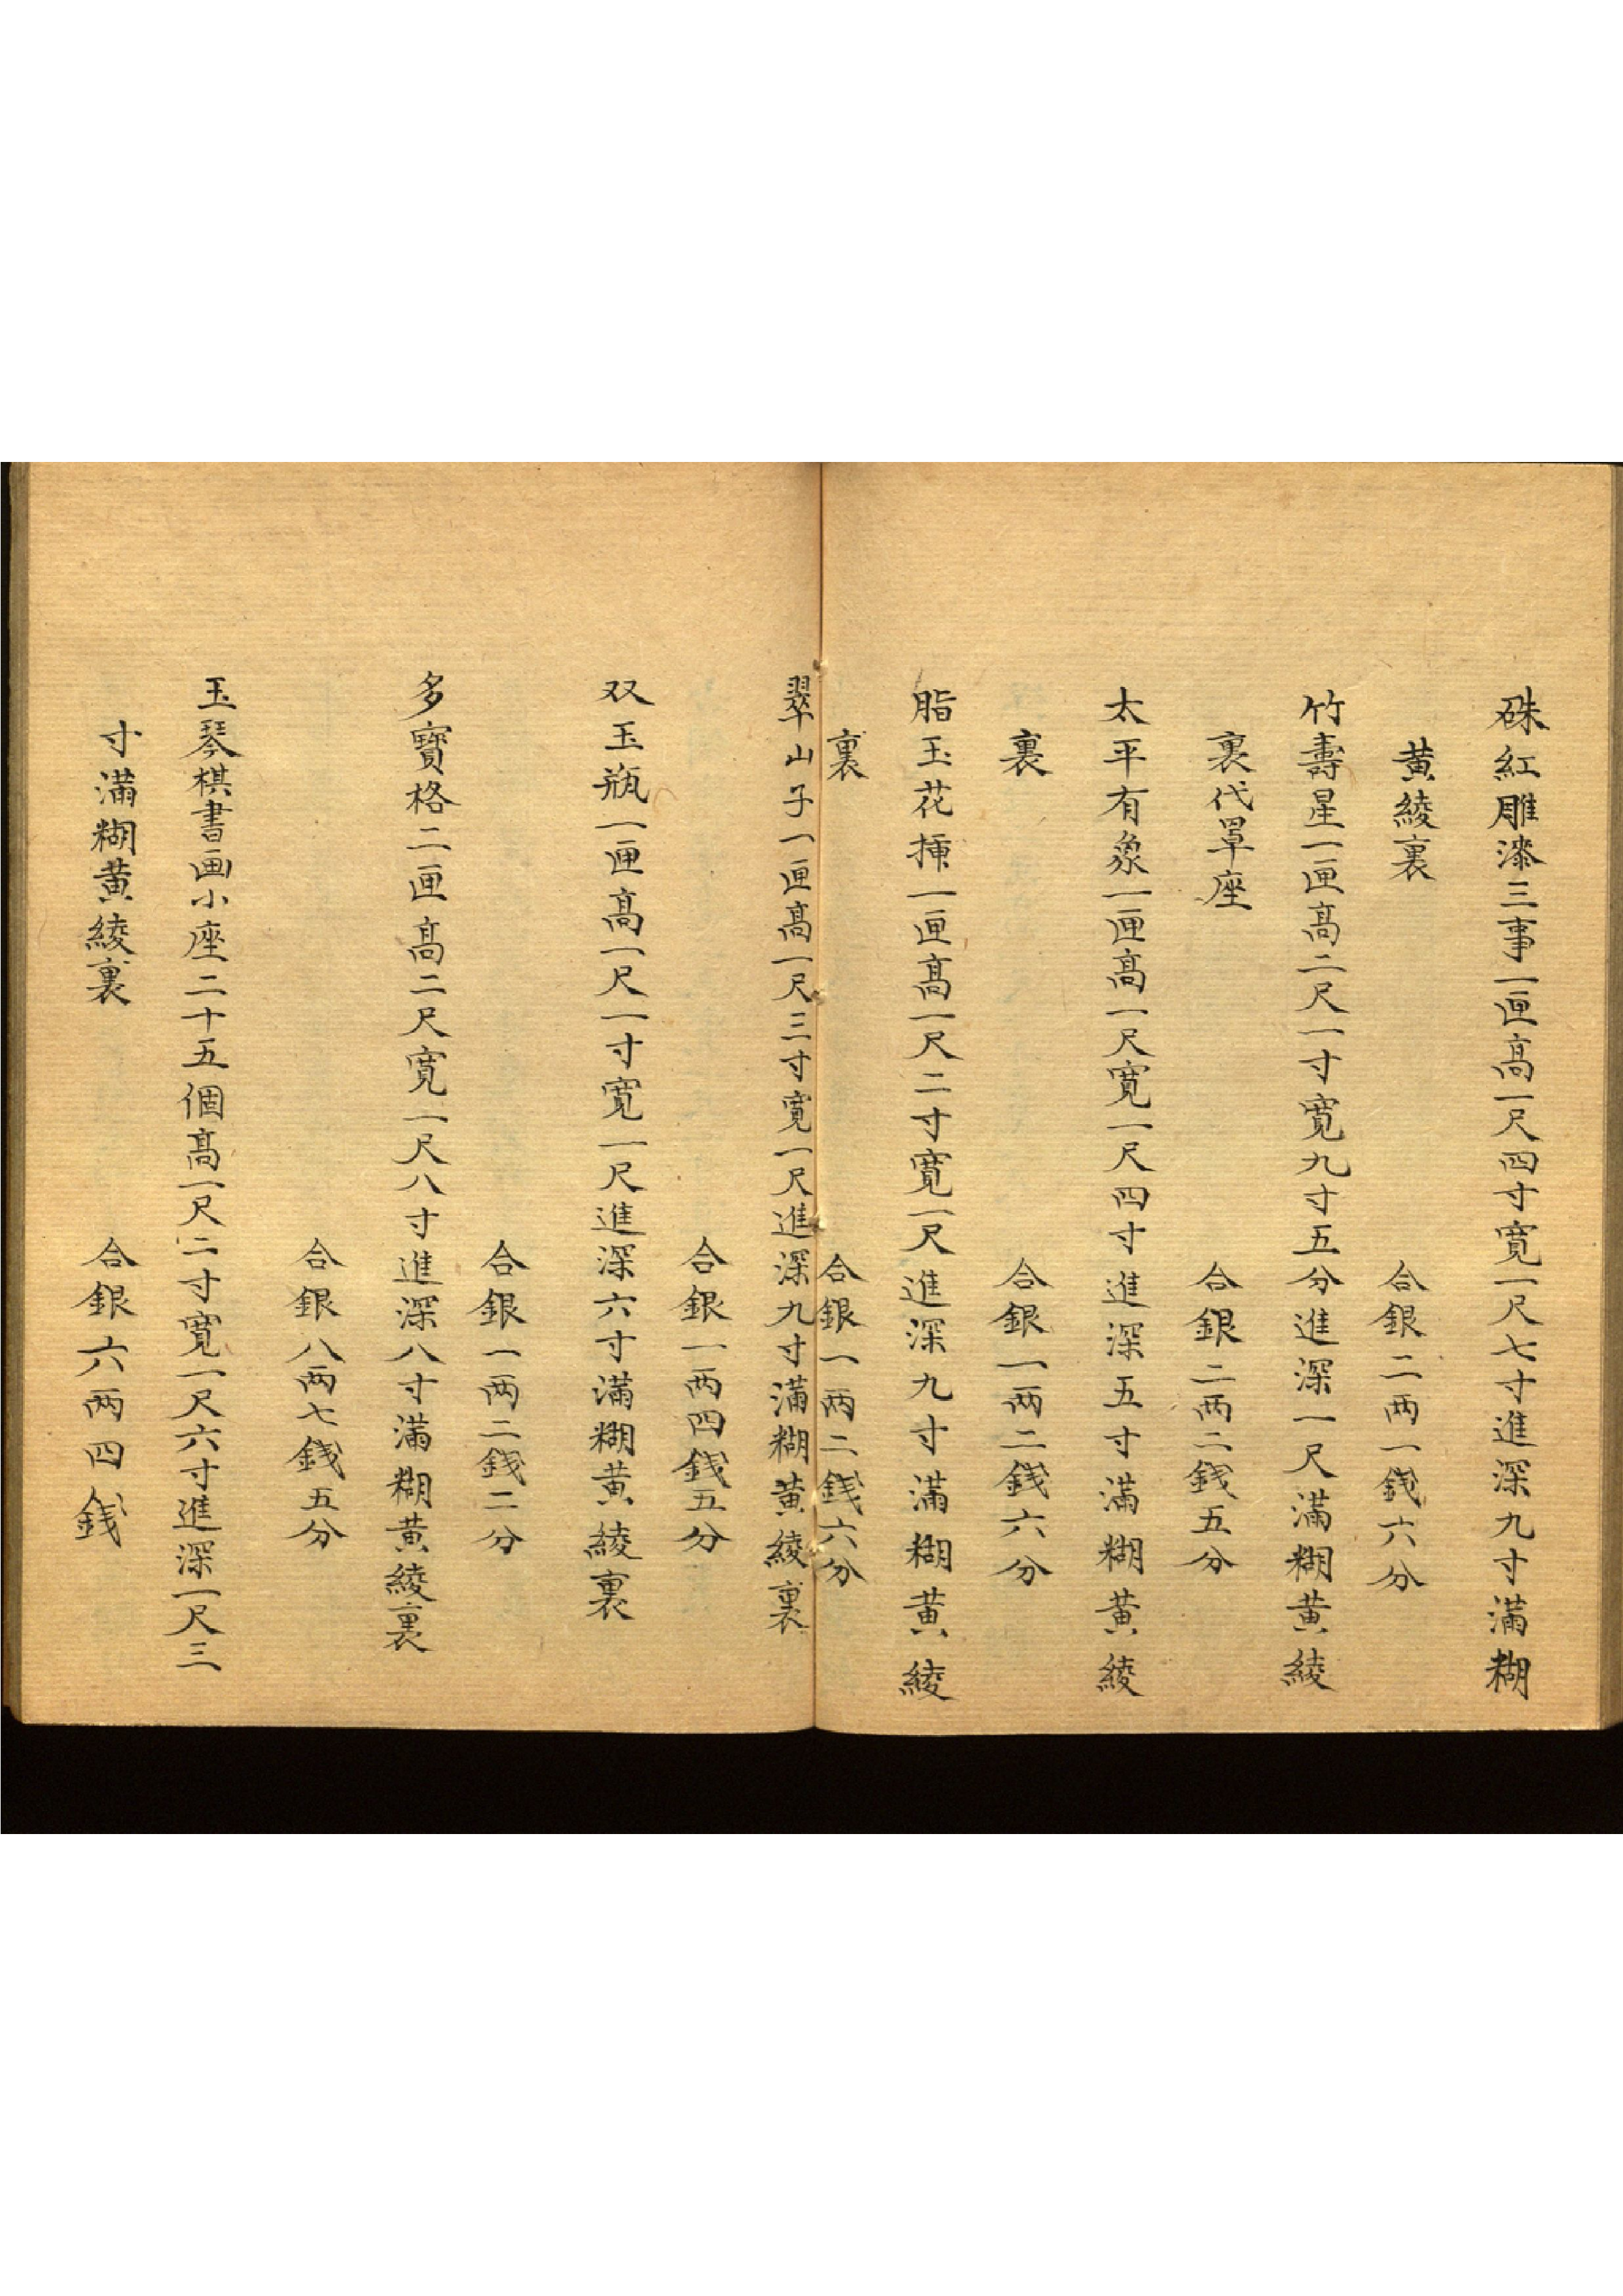 硃紅雕漆三事一匣高一尺四寸寬一尺七寸進深九寸滿糊
黃綾裏
合銀二两一錢六分
竹壽星一匣高二尺一寸寬九寸五分進深一尺滿糊黃綾
裏代罩座
合銀二两二錢五分
太平有象一匣高一尺寬一尺四寸進深五寸滿糊黃綾
裏
合銀一两二錢六分
脂玉花揷一匣高一尺二寸寬一尺進深九寸滿糊黃綾
裏
合銀一两二錢六分
翠山子一匣高一尺三寸寬一尺進深九寸滿糊黃綾裏
合銀一两四錢五分
双玉瓶一匣高一尺一寸寬一尺進深六寸滿糊黃綾裏
合銀一两二錢二分
多寶格二匣高二尺寬一尺八寸進深八寸滿糊黃綾裏
合銀八两七錢五分
玉琴棋書画小座二十五個高一尺二寸寬一尺六寸進深一尺三
寸滿糊黃綾裏
合銀六两四錢